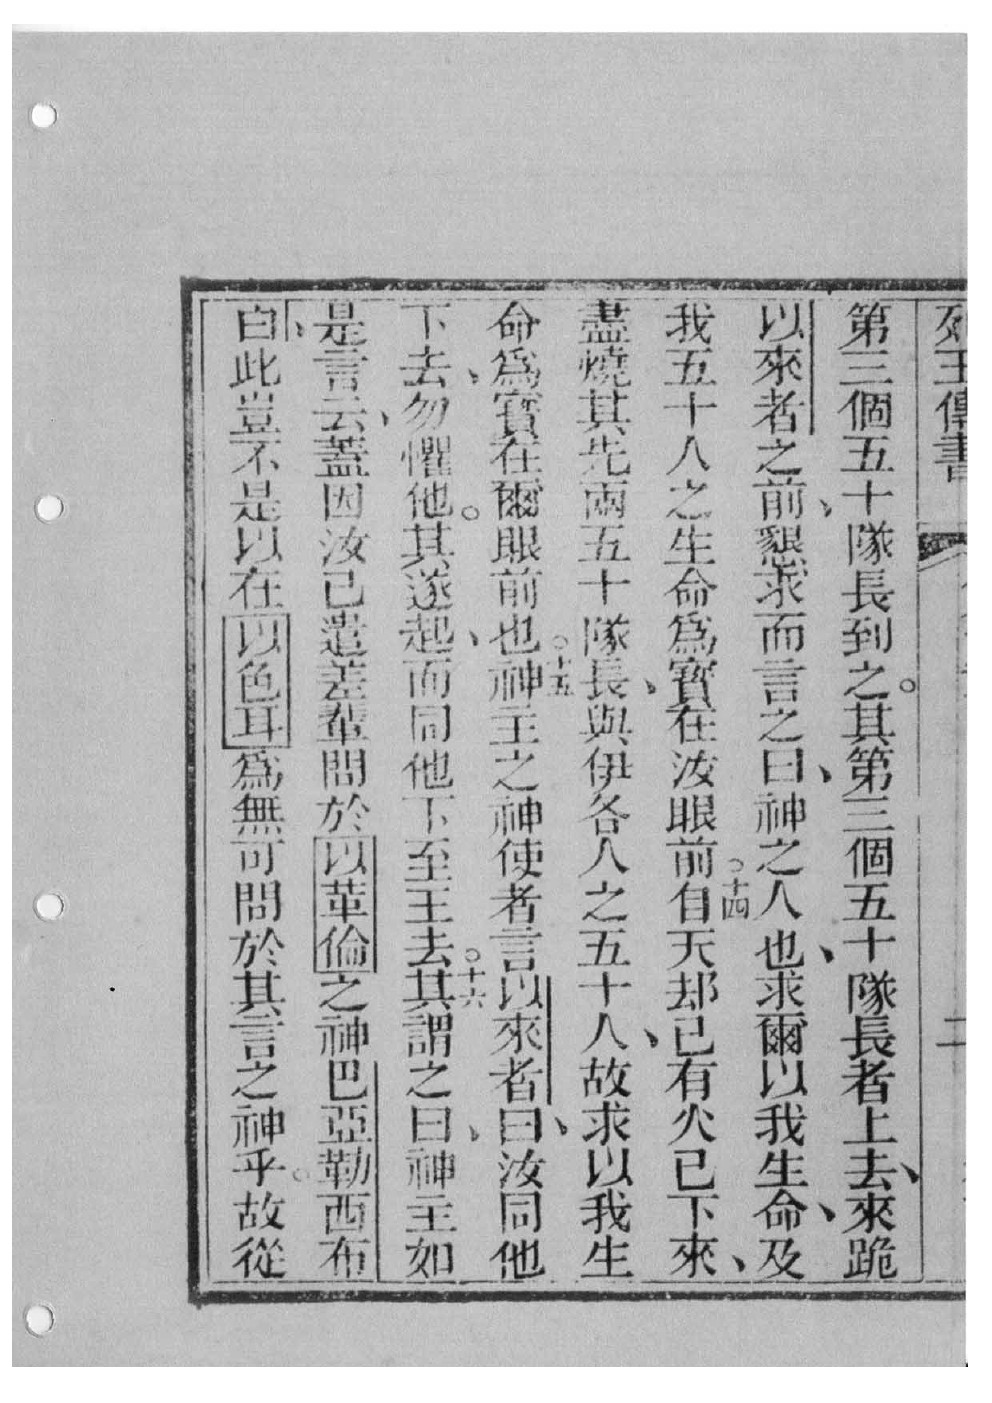 列王傳書
二
第三個五十隊長到之。其第三個五十隊長者上去、來跪
以來者之前、懇求而言之曰、神之人也、求爾以我生命、及
我五十人之生命為寶在汝眼前。十四自天却已有火已下來、
盡燒其先兩五十隊長、與伊各人之五十人、故求以我生
命爲寶在爾眼前也。十五神主之神使者言以來者曰、汝同他
下去、勿懼他。其遂起、而同他下至王去。十六其謂之曰、神主如
是言云、蓋因汝已遣差輩問於以革倫之神巴亞勒西布
白、此豈不是以在以色耳爲無可問於其言之神乎。故從